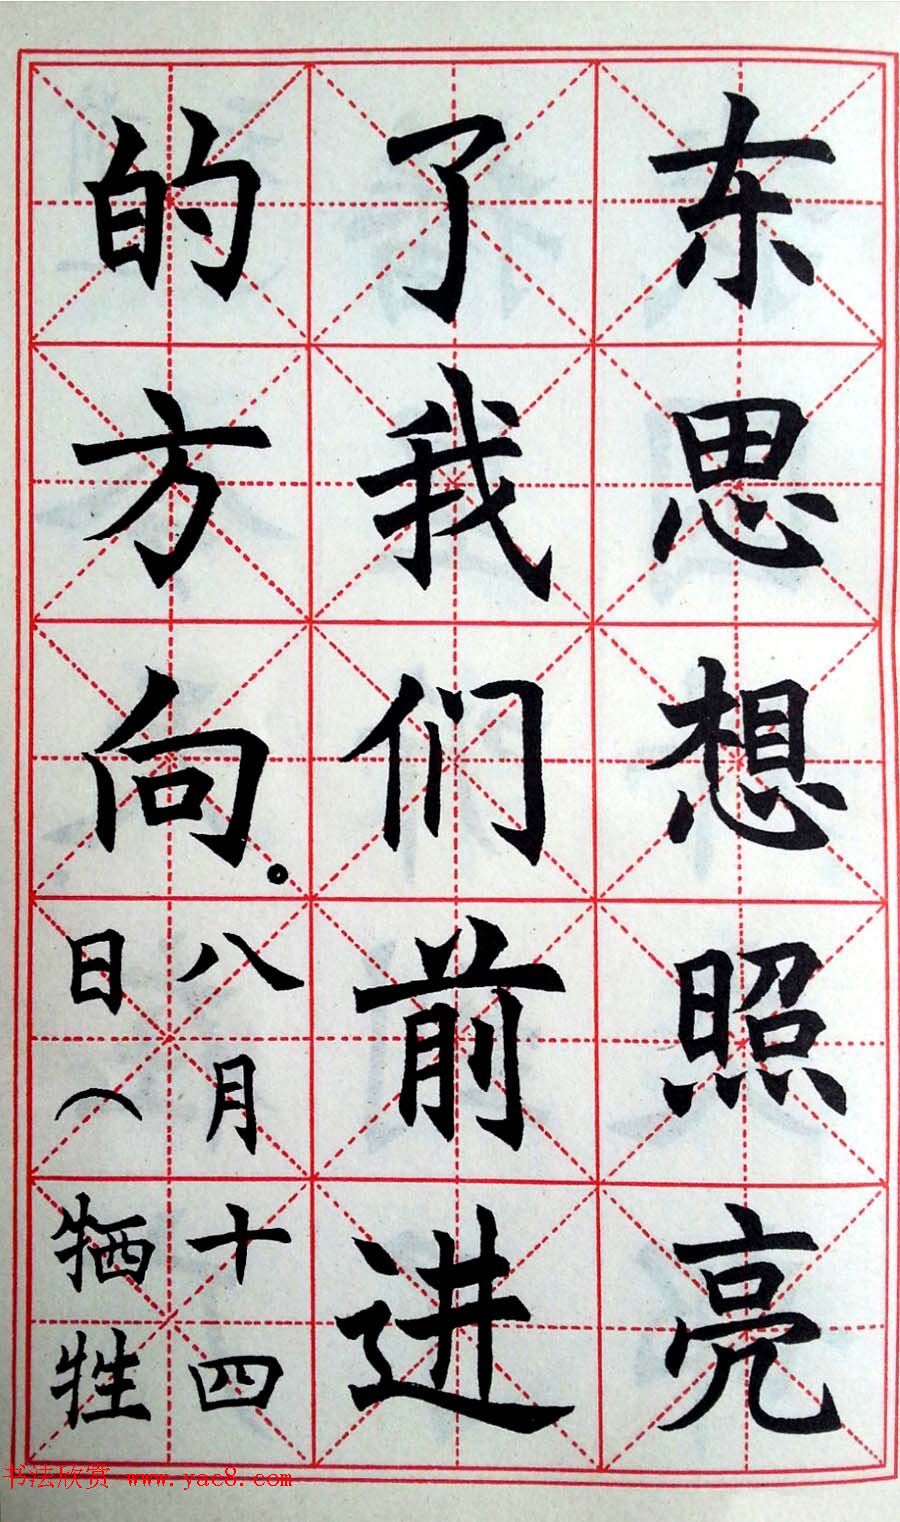 东思想照亮
了我们前进
的方向。
八月十四
日（牺牲
书法欣赏 www.yac8.com